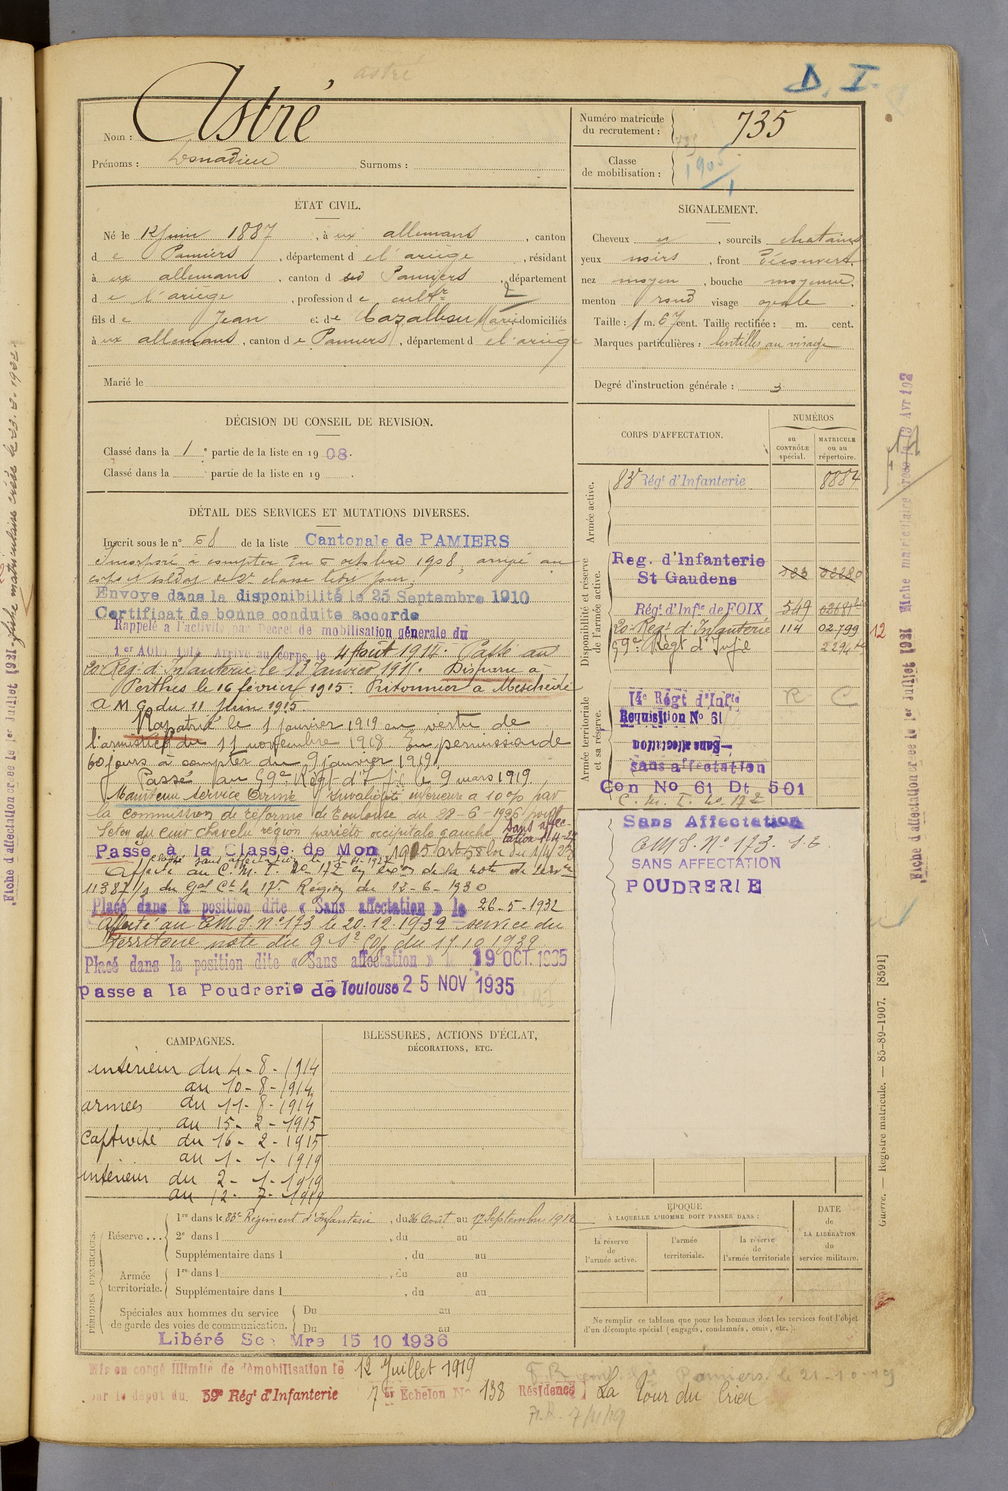 astré
D. I.
Nom : Astré
Prénoms : Donadieu Surnoms :
Numéro matricule du recrutement : 735
Classe de mobilisation : 1905
ÉTAT CIVIL.
Né le 12 Juin 1887, à ux allemans, canton
d e Pamiers, département d e l'ariège, résidant
à ux allemans, canton d e Pamiers, département
d e l'ariège, profession d e cultr
fils d e Jean et d e Cazalbou Marie domiciliés
à ux allemans, canton d e Pamiers, département d e l'ariège
Marié le
SIGNALEMENT.
Cheveux et, sourcils chatains
yeux noirs, front découvert
nez moyen, bouche moyenne.
menton rond visage ovale
Taille : 1 m. 67 cent. Taille rectifiée : m. cent.
Marques particulières : lentilles au visage
Degré d'instruction générale : 3
DÉCISION DU CONSEIL DE REVISION.
Classé dans la 1e partie de la liste en 1908.
Classé dans la partie de la liste en 19 .
DÉTAIL DES SERVICES ET MUTATIONS DIVERSES.
Inscrit sous le n° 68 de la liste Cantonale de PAMIERS
Incorporé à compter du 6 octobre 1908, arrivé au
corps et soldat de 2e classe ledit jour.
Envoyé dans la disponibilité le 25 Septembre 1910
Certificat de bonne conduite accordé
Rappelé à l'activité par Décret de mobilisation générale du
1er Août 1914 Arrivé au corps le 4 août 1914. Passé au
20e Rég. d'Infanterie le 13 Janvier 1915. Disparu à
Perthes le 16 février 1915. Prisonnier à Meschede
A M G du 11 Juin 1915.
Rapatrié le 1 janvier 1919 en vertu de
l'armistice du 11 novembre 1918 En permission de
60 jours à compter du 9 janvier 1919.
Passé au 59e Régt d'Inf le 9 mars 1919.
Maintenu service armé Invalidité inférieure à 10% par
la commission de réforme de Toulouse du 28-6-1926 pour
Lésion du cuir chevelu région pariéto occipitale gauche
Sans affectation
Passé à la Classe de Mon 1905 art 58 loi du
Affecté au C.M.I. No 172 en de la note de
11387 1/3 du Gal Ct la 17e Région du 13-6-1930
Placé dans la position dite « Sans affectation » le 26-5-1932
Affecté au CMI. N° 173 le 20-12-1932 service du
Territoire note du
Placé dans la position dite « Sans affectation » le 19 OCT. 1935
Passé à la Poudrerie de Toulouse 25 NOV 1935
CORPS D'AFFECTATION.
NUMÉROS
au CONTRÔLE spécial.
MATRICULE ou au répertoire.
Armée active.
83e Régt d'Infanterie 8884
Disponibilité et réserve de l'armée active.
Reg. d'Infanterie
St Gaudens
Régt d'Infie de FOIX 549
20e Régt d'Infanterie 114 02799 12
59e Régt d'Infie
Armée territoriale et sa réserve.
14e Régt d'Infie R C
Requisition No 61
Sans affectation
Sans affectation
Con No 61 Dt 501
C. M. I. No 172
Sans Affectation
CMI. N° 173.
SANS AFFECTATION
POUDRERIE
CAMPAGNES.
intérieur du 4-8-1914
au 10-8-1914
armées du 11-8-1914
au 15-2-1915
Captivité du 16-2-1915
au 1-1-1919
intérieur du 2-1-1919
au 12-7-1919
BLESSURES, ACTIONS D'ÉCLAT,
DÉCORATIONS, ETC.
PÉRIODES D'EXERCICES.
Réserve....
1re dans le 83e Régiment d'Infanterie, du 26 Août au 17 Septembre 1912
2e dans l , du au
Supplémentaire dans l , du au
Armée territoriale.
1re dans l , du au
Supplémentaire dans l , du au
Spéciales aux hommes du service de garde des voies de communication.
Du au
Du au
Libéré Sce Mre 15 10 1936
ÉPOQUE
À LAQUELLE L'HOMME DOIT PASSER DANS :
la réserve de l'armée active.
l'armée territoriale.
la réserve de l'armée territoriale
DATE de LA LIBÉRATION du service militaire.
Ne remplir ce tableau que pour les hommes dont les services font l'objet
d'un décompte spécial (engagés, condamnés, omis, etc.).
Mis en congé illimité de démobilisation le 12 Juillet 1919
par le dépôt du 59e Régt d'Infanterie 7e Echelon No 138 Résidence La Tour du Crieu
Pamiers le 21-10-19
Guerre. — Registre matricule. — 85-89-1907. [8591]
Fiche d'affectation créée le 1er Juillet 1931
Fiche matriculaire
Fiche d'affectation créée le 1er Juillet 1931
fiche matriculaire créée le